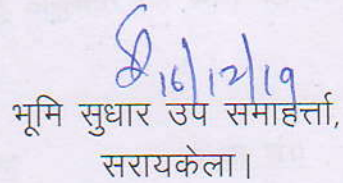 16/12/19
भूमि सुधार उप समाहर्त्ता,
सरायकेला।